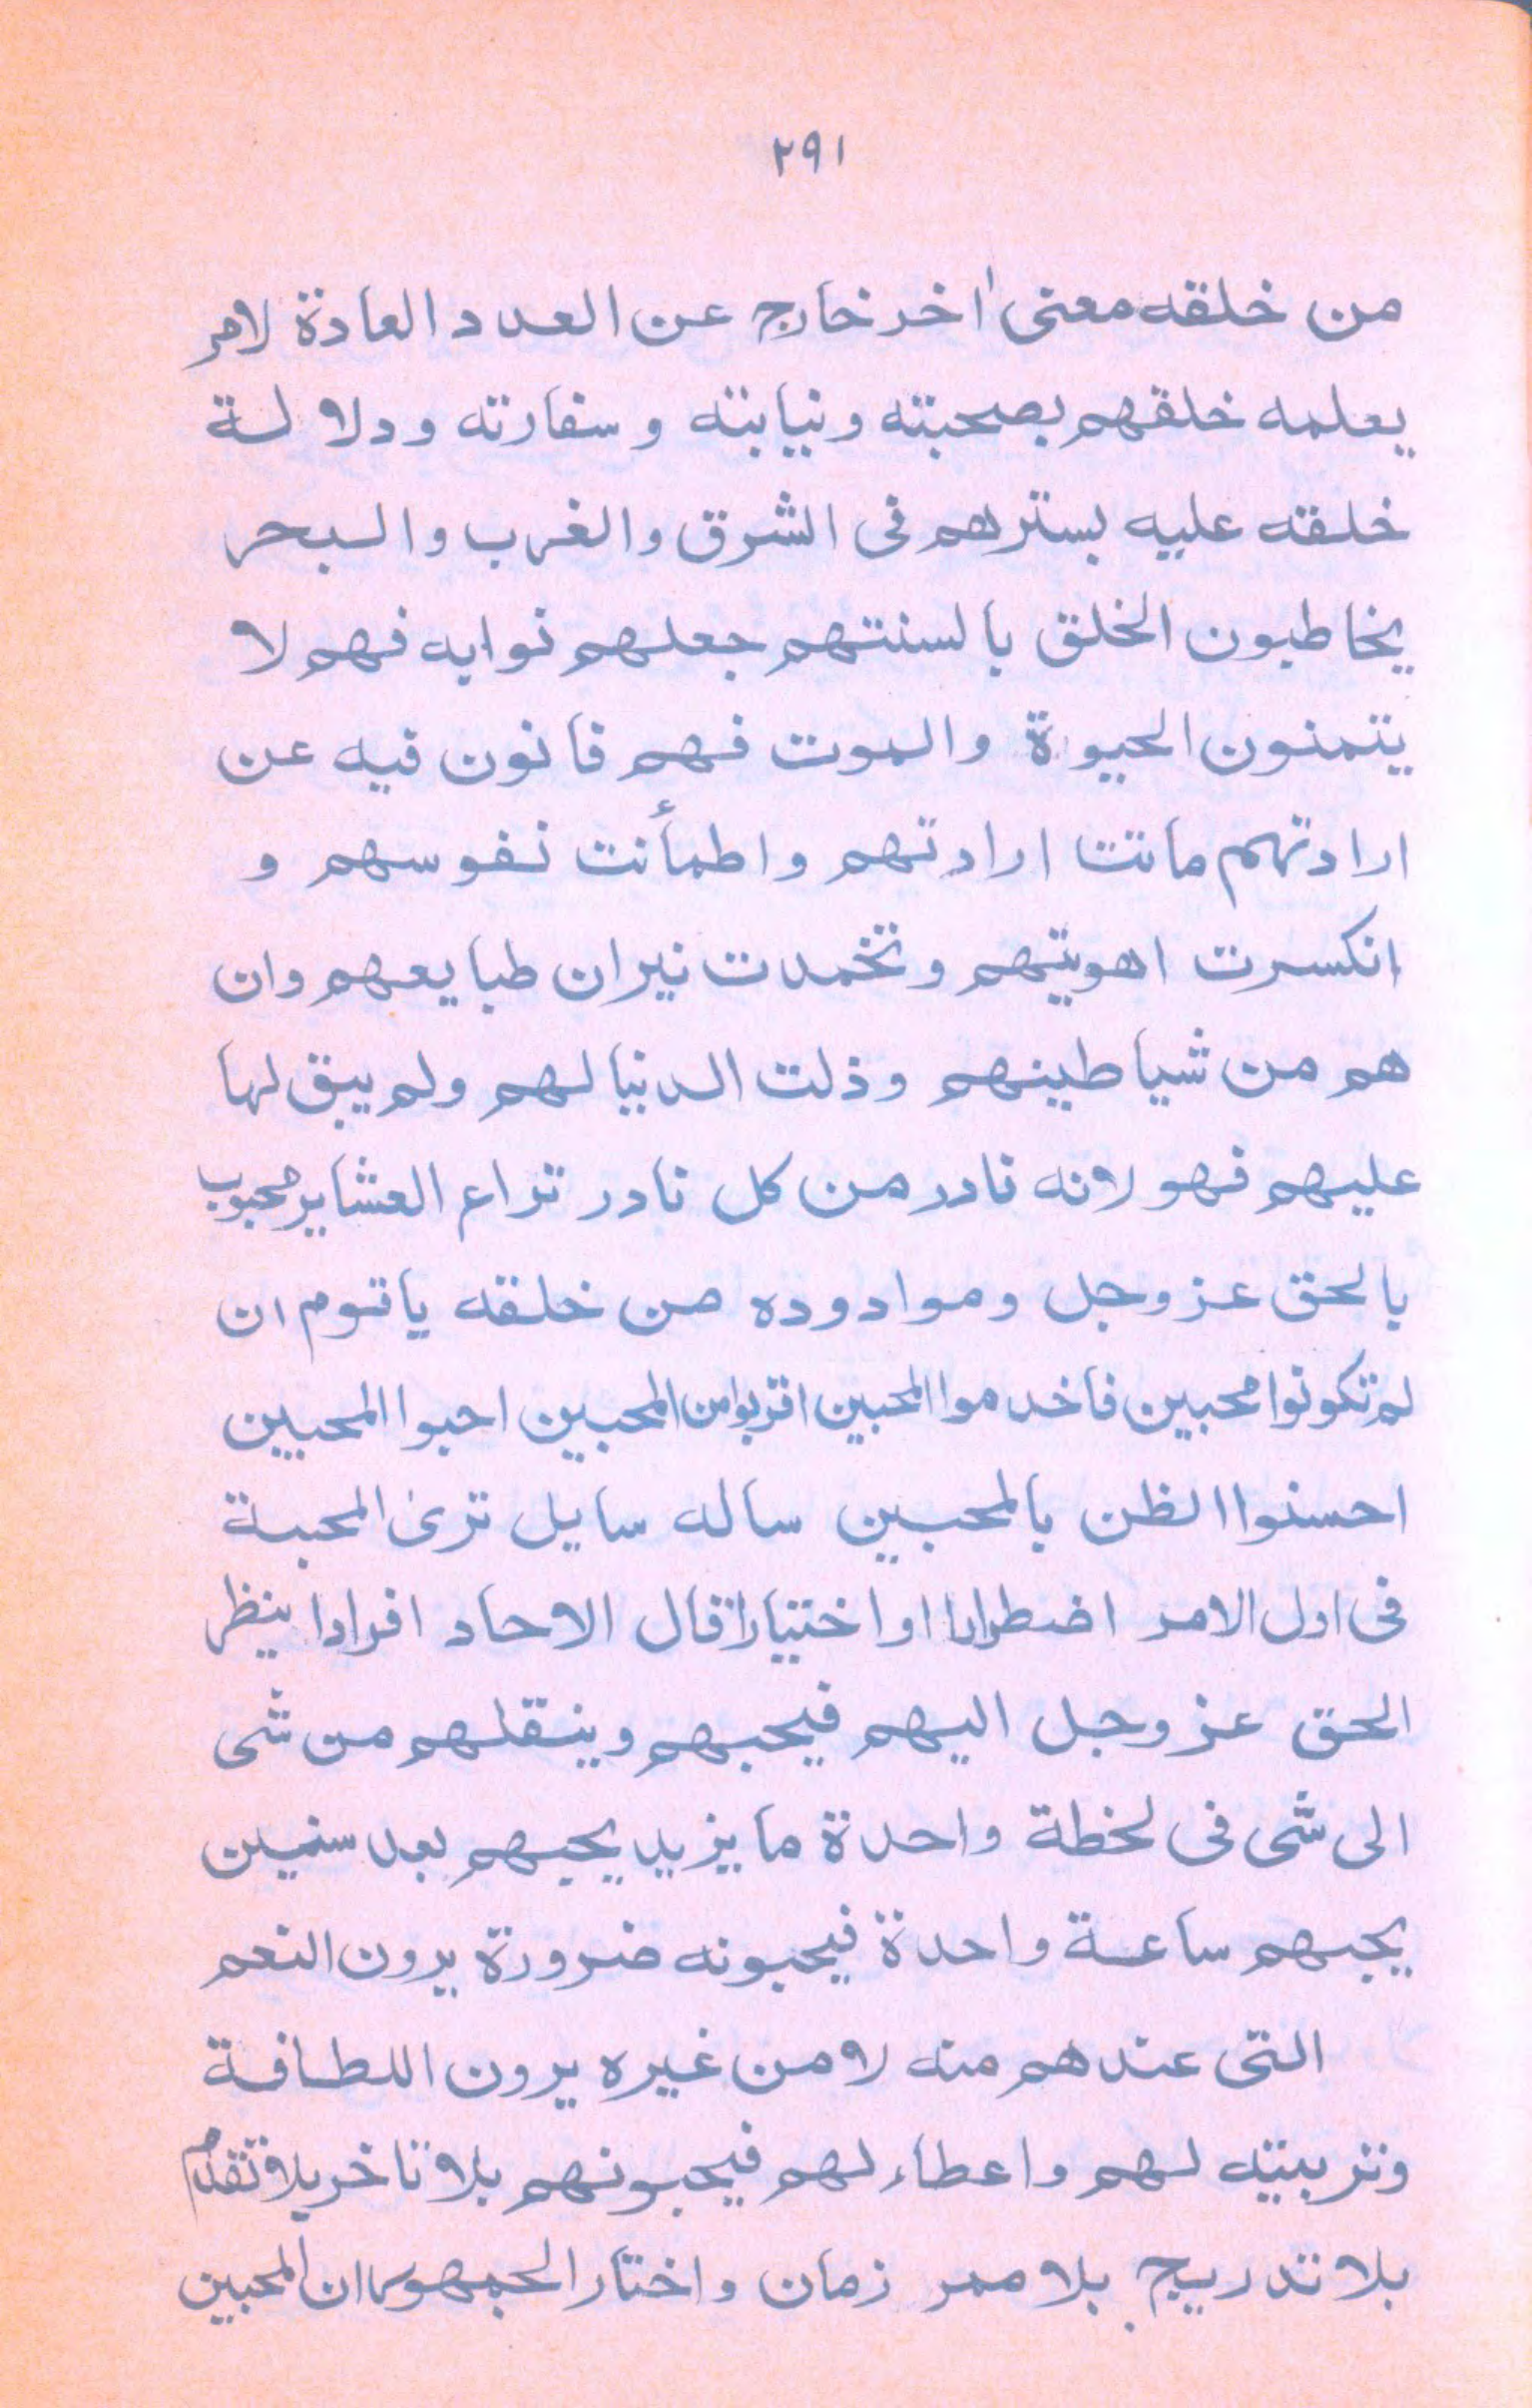 ٢٩١
من خلقه معنى اخر خارج عن العدد العادة لامر
يعلمه خلقهم بصحبته ونيابته و سفارته و دلالة
خلقه عليه بسترهم فى الشرق والغرب والبحر
يخاطبون الخلق بالسنتهم جعلهم نوابه فهم لا
يتمنون الحيوة والموت فهم فانون فيه عن
ارادتهم ماتت ارادتهم واطمأنت نفوسهم و
انكسرت اهويتهم وتخمدت نيران طبايعهم وان
هم من شياطينهم وذلت الدنيا لهم ولم يبق لها
عليهم فهو لانه نادر من كل نادر نزاع العشاير محبوب
بالحق عز وجل وموادوده من خلقه ياقوم ان
لم تكونوا محبين فاخدموا المحبين اقربوا من المحبين احبوا المحبين
احسنوا الظن بالمحبين ساله سايل ترى المحبة
فى اول الامر اضطرارا او اختيارا قال الاحاد افرادا ينظر
الحق عز وجل اليهم فيحبهم وينقلهم من شى
الى شى فى لخطة واحدة ما يزيد يحبهم بعد سنين
يحبهم ساعة واحدة فيحبونه ضرورة يرون النعم
التى عندهم منه لا من غيره يرون اللطافة
وتربيته لهم واعطاء لهم فيحبونهم بلا تاخر بلا تقدم
بلا تدريج بلا ممر زمان واختار الجمهور ان المحبين